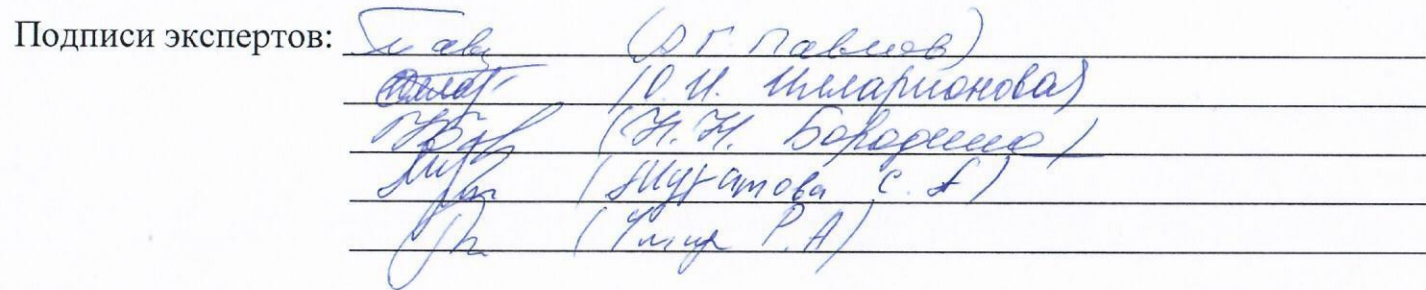 Подписи экспертов: (Ю.Г. Павлов)
(О.И. Илларионова)
(Н.Н. Бородина)
(Муратова С.А)
(Р.А)